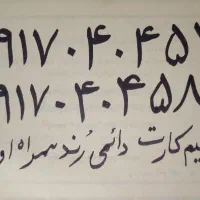 ۹۱۷۰۴۰۴۵
۹۱۷۰۴۰۴۵۸
یم کارت دائمی رُند همراه او